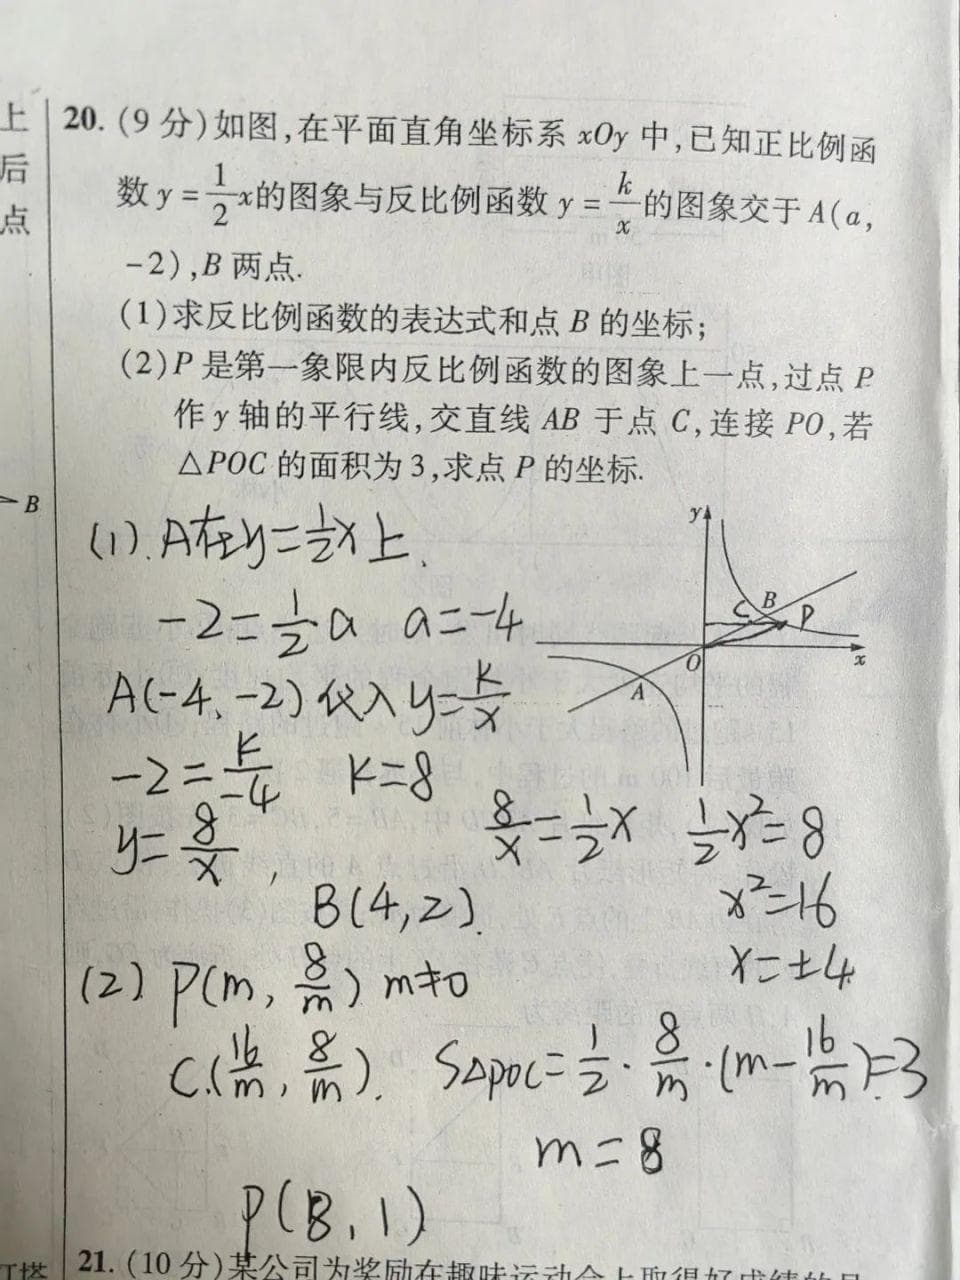 上
后
点
20. (9分)如图,在平面直角坐标系 xOy 中,已知正比例函
数 y = 1/2 x的图象与反比例函数 y = k/x 的图象交于 A(a,
-2),B 两点.
(1)求反比例函数的表达式和点 B 的坐标;
(2)P 是第一象限内反比例函数的图象上一点,过点 P
作 y 轴的平行线,交直线 AB 于点 C,连接 PO,若
△POC 的面积为3,求点 P 的坐标.
B
(1). A在y=1/2x上.
-2=1/2a a=-4
A(-4,-2)代入y=k/x
-2=k/-4 k=8
y=8/x ,
8/x=1/2x 1/2x²=8
B(4,2).
x²=16
x=±4
(2) P(m, 8/m) m≠0
C.(16/m, 8/m). S△POC=1/2·8/m·(m-16/m)=3
m=8
P(8,1)
y
C
B
P
O
x
A
21. (10分)某公司为奖励在趣味运动会上取得好成绩的员